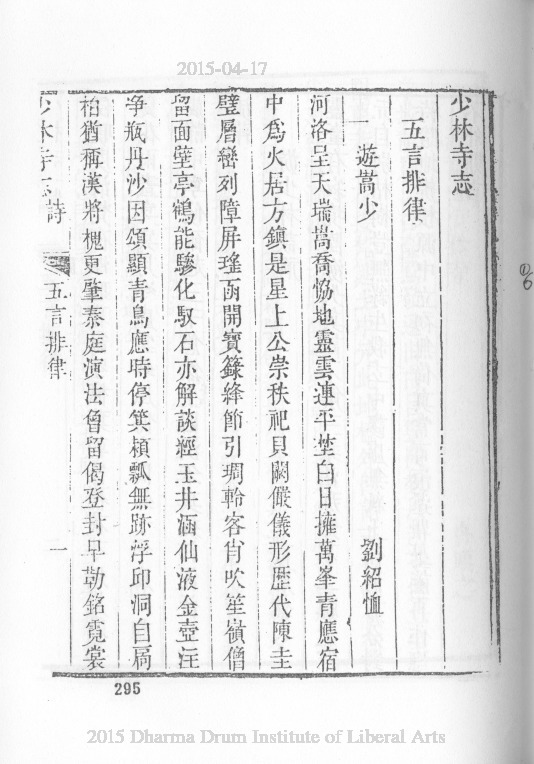 2015-04-17
少林寺志
五言排律
遊嵩少
劉紹恤
河洛呈天瑞嵩喬恊地靈雲連平埜白日擁萬峯青應宿
中爲火居方鎮是星上公崇秩祀貝闕儼儀形歷代陳圭
璧層巒列障屏瑤函開寳籙絳節引琱軨客背吹笙嶺僧
留面壁亭鶴能驂化馭石亦解談經玉井涵仙液金壺注
净瓶丹沙因頌顯青鳥應時停箕頴瓢無跡浮邱洞自扃
柏猶稱漢將槐更肇秦庭演法曾留偈登封早勒銘霓裳
少林寺志
詩
五言排律
一
295
2015 Dharma Drum Institute of Liberal Arts